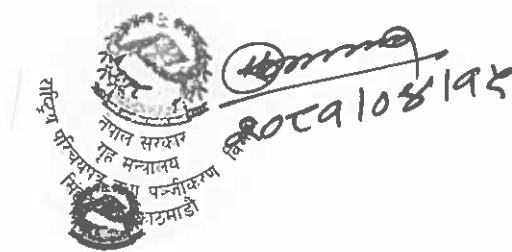 नेपाल सरकार
गृह मन्त्रालय
राष्ट्रिय परिचयपत्र तथा पञ्जीकरण
काठमाडौं
२०८१।०४।१५